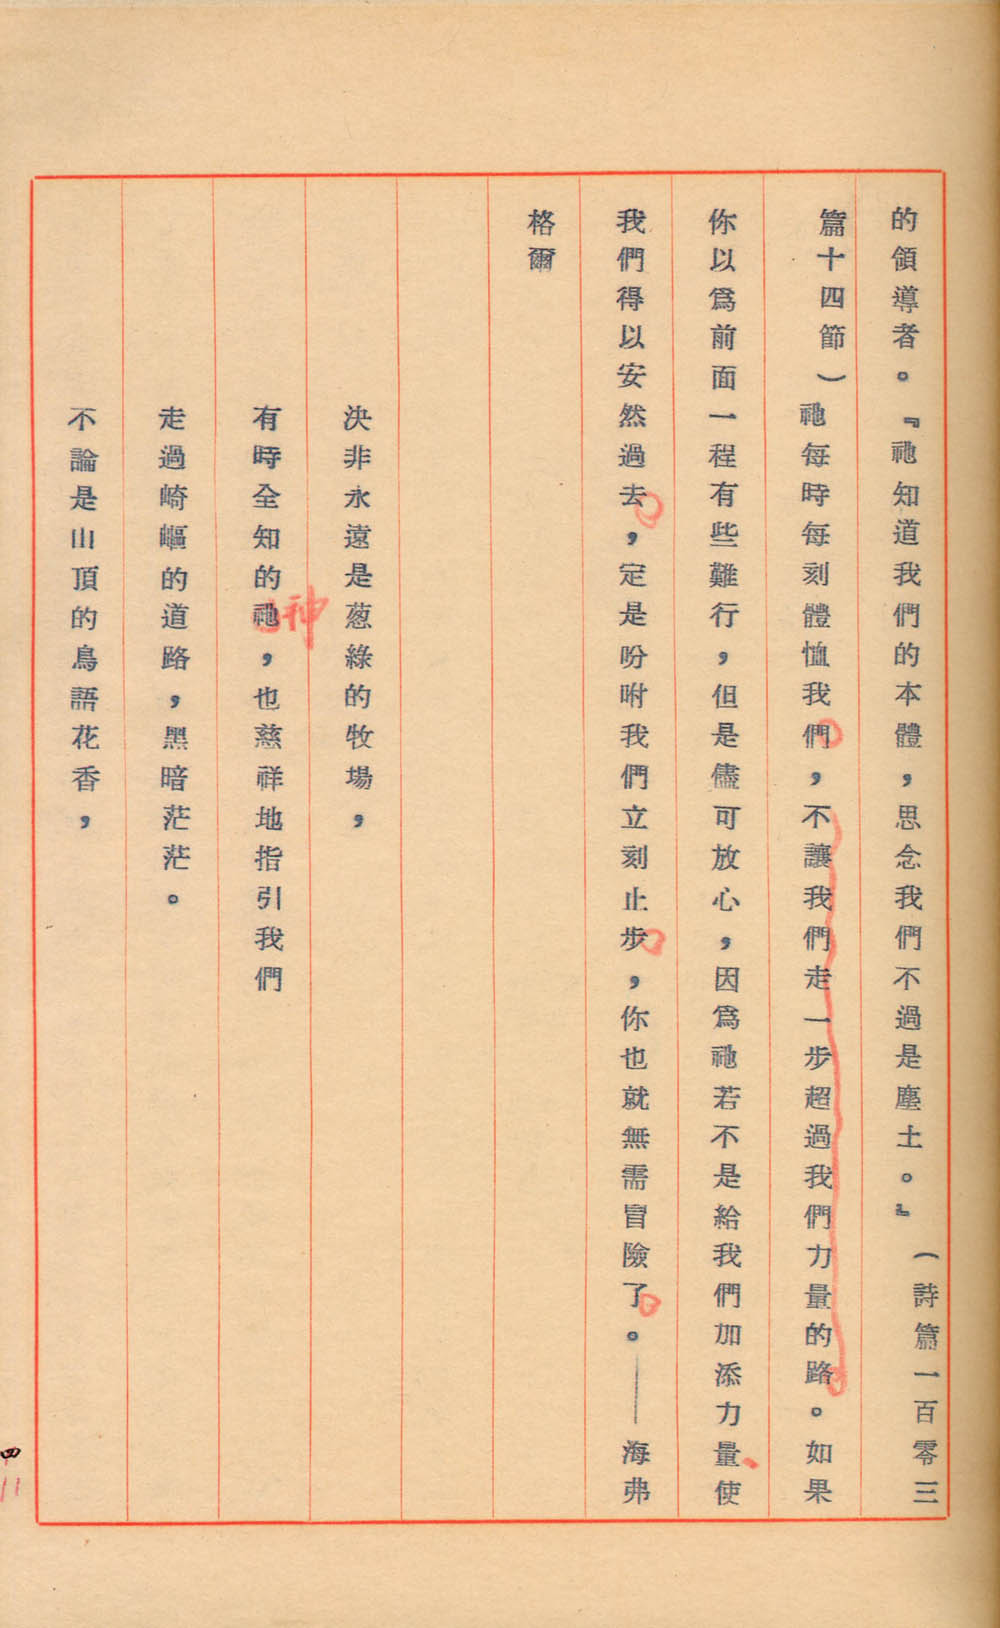 的領導者。『祂知道我們的本體，思念我們不過是塵土。』（詩篇一百零三
篇十四節）祂每時每刻體恤我們，不讓我們走一步超過我們力量的路。如果
你以爲前面一程有些難行，但是儘可放心，因爲祂若不是給我們加添力量使
我們得以安然過去，定是吩咐我們立刻止步，你也就無需冒險了。——海弗
格爾
決非永遠是葱綠的牧場，
有時全知的祂，也慈祥地指引我們
神
走過崎嶇的道路，黑暗茫茫。
不論是山頂的鳥語花香，
四
11